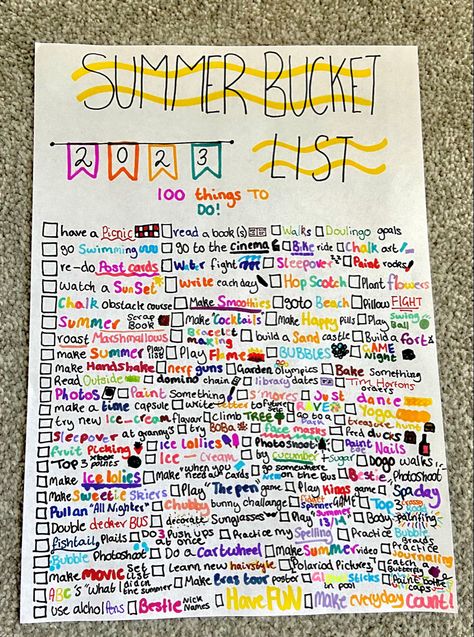 SUMMER BUCKET
2023 LIST
100 things TO
DO!
have a Picnic read a book(s) Walks Duolingo goals
go Swimming go to the cinema Bike ride Chalk art
re-do Post cards Water fight Sleepover Paint rocks
Watch a SunSet Write each day Hop Scotch Plant flowers
Chalk obstacle course Make Smoothies goto Beach Pillow FIGHT
Summer Scrap Book Make "Cocktails" Make Happy pills Play Swing Ball
roast Marshmallows Bracelet making build a Sand castle Build a fort
make Summer Play list Play Flame BUBBLES GAME Night
make Handshake nerf guns Garden Olympics Bake Something
Read Outside domino chain library dates Tim Hortons orders
Photos Paint Something S'mores Just dance
make a time capsule Write letter to future self CAVE Yoga
try new Ice-Cream flavour climb TREE go to a park treasure hunt
Sleepover at grannys try BOBA face masks Feed ducks
fruit Picking Ice Lollies Photoshoot Paint Nails
Top 3 xbox points Ice-Cream by cucumber + Sugar Dogo walks
Make Ice lollies Make "when you need aux" cards go somewhere on the Bus Bestie Photoshoot
Make Sweetie Skiers Play "The pen" game Play Kings game Spa day
Pull an "All Nighter" Chubby bunny challenge fidget Spinner GAME Top 3
Double decker BUS decorate Sunglasses Play Summer 13/14 Body Painting
fishtail Plaits Do 3 Push ups at once Practice my Spelling Practice Bubble grafs
Bubble Photoshoot Do a Cartwheel Make Summer video Practice Journaling
make MOVIE Set list Learn new hairstyle Polariod Pictures Catch a Butterfly
ABC's "what I did in the summer" Make Eras tour poster Glow Sticks in pool Paint bottle caps
use alchol Pens Bestie Nick Names Have FUN Make everyday Count!